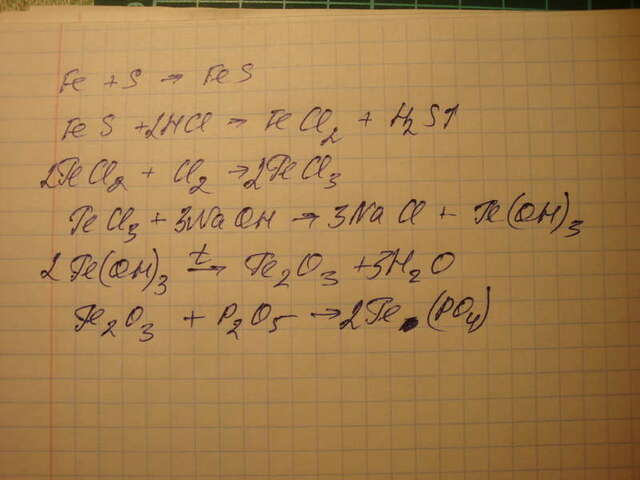 Fe + S → FeS
FeS + 2HCl → FeCl₂ + H₂S↑
2FeCl₂ + Cl₂ → 2FeCl₃
FeCl₃ + 3NaOH → 3NaCl + Fe(OH)₃
2Fe(OH)₃ t→ Fe₂O₃ + 3H₂O
Fe₂O₃ + P₂O₅ → 2Fe(PO₄)